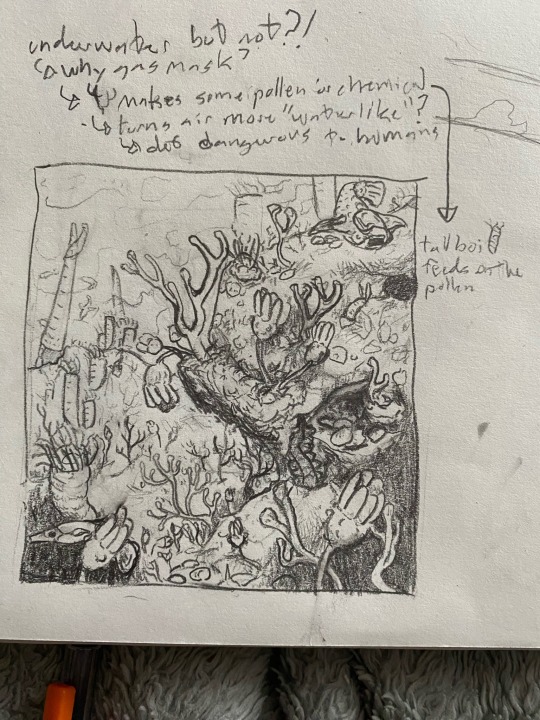 underwater but not?!
why gas mask?
↳ makes some pollen or chemical
↳ turns air more "waterlike"?
↳ dangerous to humans
tall boi
feeds on the
pollen